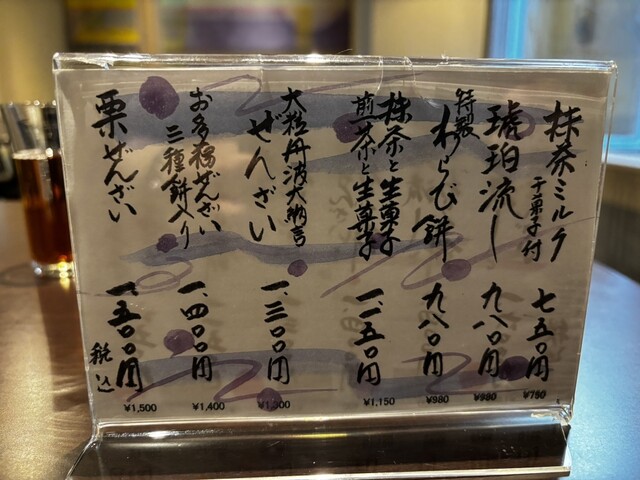 抹茶ミルク
干菓子付
七五〇円
琥珀流し
九八〇円
特製
わらび餅
九八〇円
抹茶と生菓子
煎茶と生菓子
一、一五〇円
大粒丹波大納言
ぜんざい
一、三〇〇円
お多福ぜんざい
三種餅入り
一、四〇〇円
栗ぜんざい
一、五〇〇円
税込
¥1,500
¥1,400
¥1,300
¥1,150
¥980
¥980
¥750